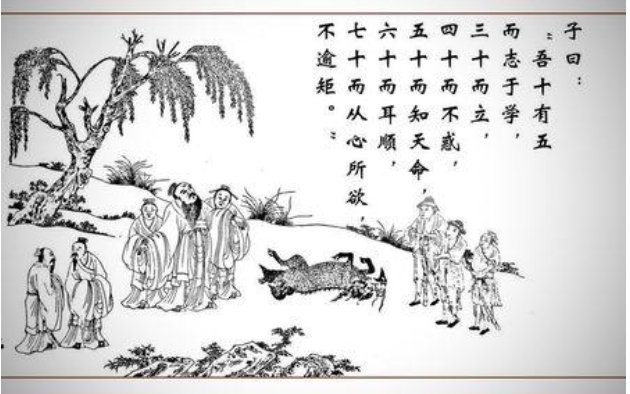 子曰：
“吾十有五
而志于学，
三十而立，
四十而不惑，
五十而知天命，
六十而耳顺，
七十而从心所欲，
不逾矩。”